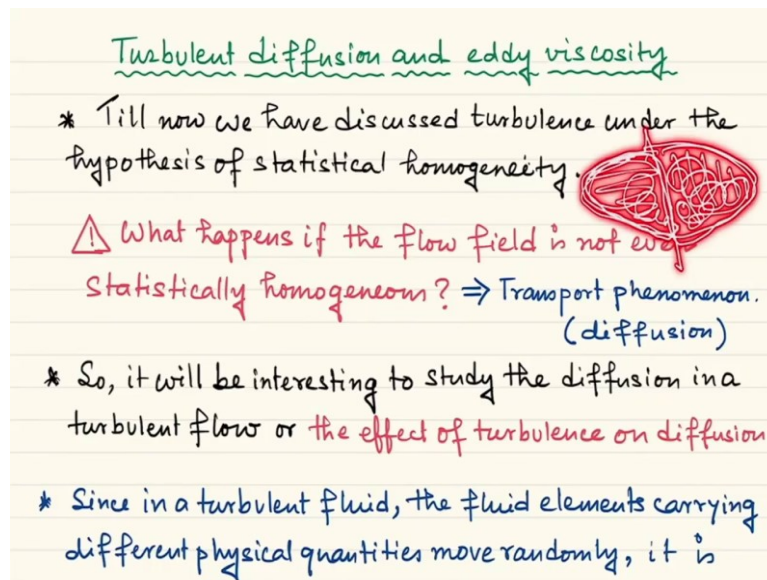 Turbulent diffusion and eddy viscosity
* Till now we have discussed turbulence under the
hypothesis of statistical homogeneity.
⚠ What happens if the flow field is not even
statistically homogeneous? ⇒ Transport phenomenon.
(diffusion)
* So, it will be interesting to study the diffusion in a
turbulent flow or the effect of turbulence on diffusion
* Since in a turbulent fluid, the fluid elements carrying
different physical quantities move randomly, it is